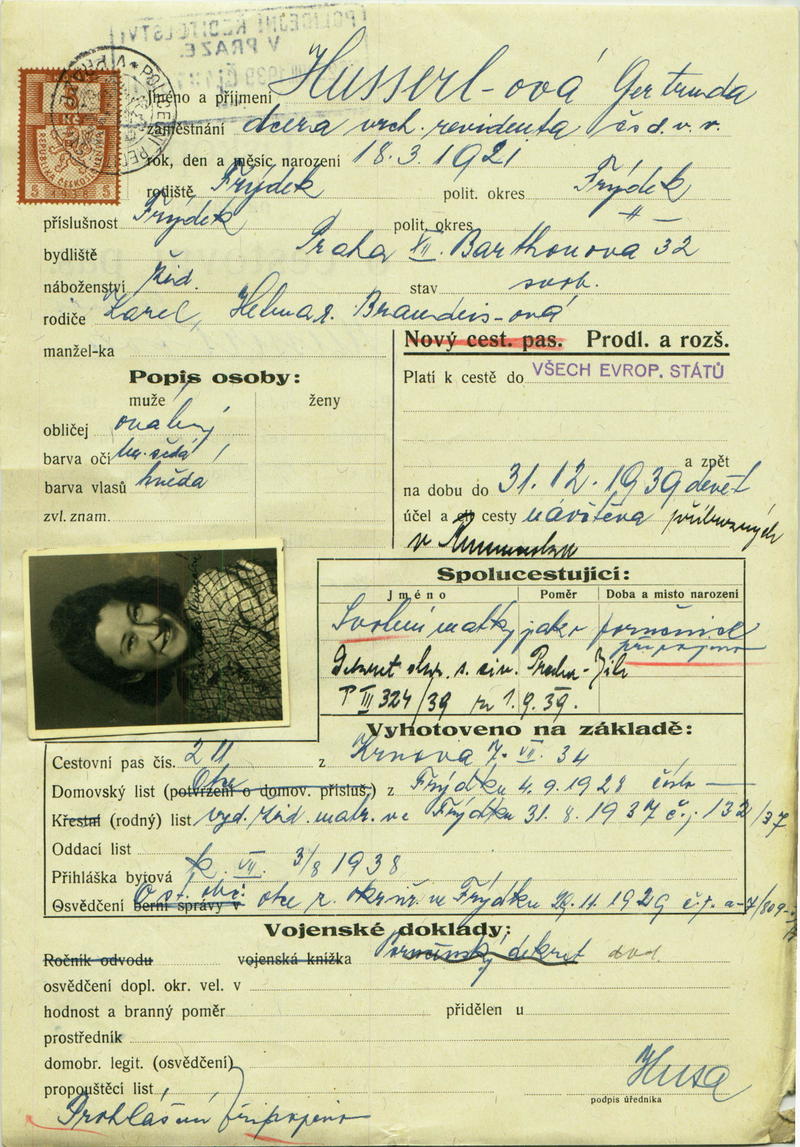 POLICEJNÍ ŘEDITELSTVÍ
V PRAZE.
Jméno a příjmení Husserl-ová Gertruda
zaměstnání dcera vrch. revidenta čsd. v. v.
rok, den a měsíc narození 18.3.1921
rodiště Frýdek polit. okres Frýdek
příslušnost Frýdek polit. okres —〃—
bydliště Praha VII. Barthonova 32
náboženství žid. stav svob.
rodiče Karel, Helma r. Brandeis-ová
manžel-ka
Nový cest. pas. Prodl. a rozš.
Platí k cestě do VŠECH EVROP. STÁTŮ
a zpět
na dobu do 31.12.1939 devět
účel a cesty návštěva příbuzných
v
Popis osoby:
muže ženy
obličej oválný
barva očí šedá
barva vlasů hnědá
zvl. znam.
Spolucestující:
Jméno Poměr Doba a misto narození
Svolení matky jako poručnice
připojeno
Dekret s. civ. Praha-Jih
P III 324/39 z 1.9.39.
Vyhotoveno na základě:
Cestovní pas čís. 211 z Krnova 7. VII. 34
Domovský list (potvrzení o domov. přísluš.) z Frýdku 4.9.1928 číslo —
Křestní (rodný) list vyd. žid. matr. ve Frýdku 31.8.1937 č.j. 132/37
Oddací list
Přihláška bytová k. VII. 3/8 1938
Osvědčení berní správy v Os. obč. otce z. okr. úř. ve Frýdku 1929 č.j.
Vojenské doklady:
Ročník odvodu vojenská knížka Poručenský dekret dod.
osvědčení dopl. okr. vel. v
hodnost a branný poměr přidělen u
prostředník
domobr. legit. (osvědčení)
propouštěcí list
Prohlášení připojeno
Husa
podpis úředníka